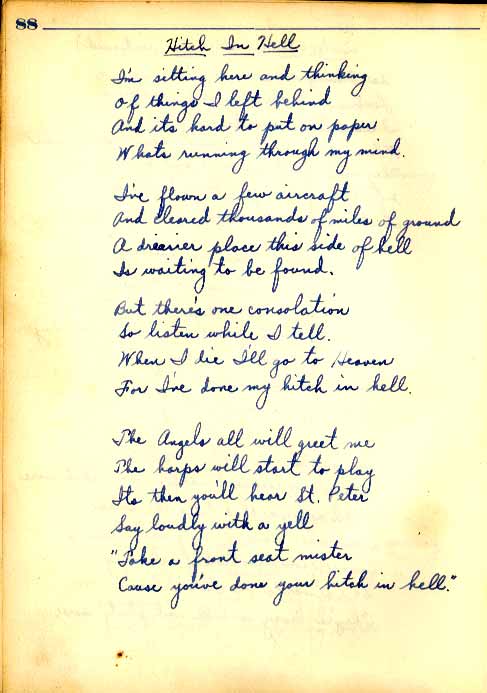 88
Hitch In Hell
I'm sitting here and thinking
Of things I left behind
And its hard to put on paper
Whats running through my mind.
I've flown a few aircraft
And cleared thousands of miles of ground
A drearier place this side of hell
Is waiting to be found.
But there's one consolation
So listen while I tell.
When I die I'll go to Heaven
For I've done my hitch in hell.
The Angels all will greet me
The harps will start to play
Its then you'll hear St. Peter
Say loudly with a yell
"Take a front seat mister
Cause you've done your hitch in hell."